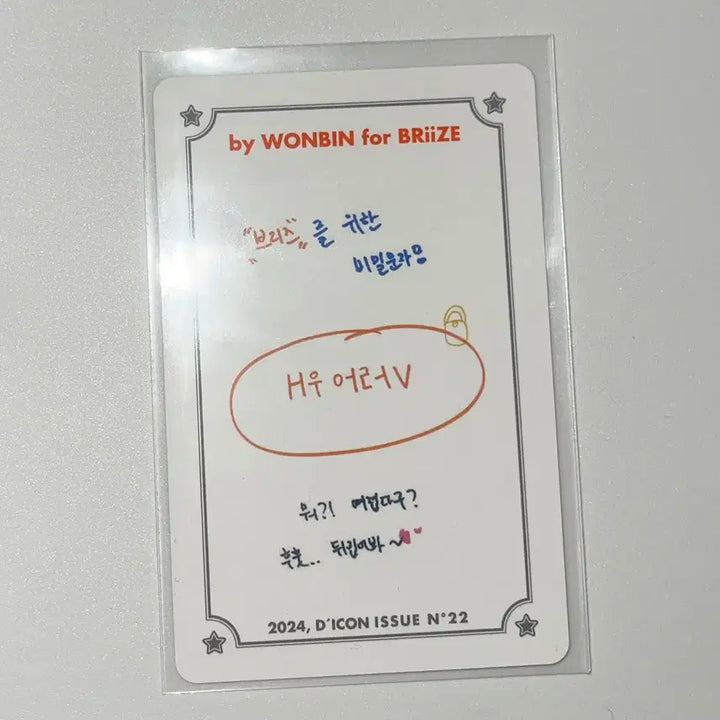 by WONBIN for BRiiZE
"브리즈"를 위한
비밀문자 !
H우 어러V
뭐?! 어렵다구?
훗훗.. 뒤집어봐~
2024, D'ICON ISSUE N°22